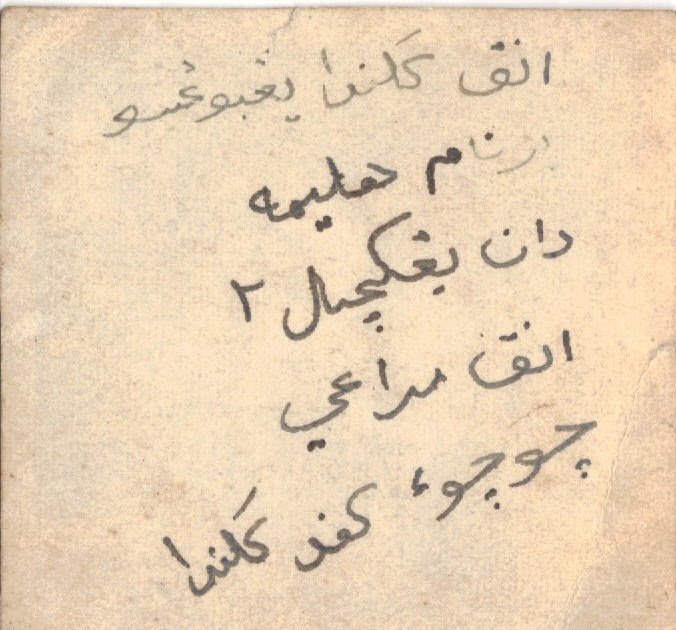 انق كلندا يڠبوڠسو
برنام حليمه
دان يڠكچيل ٢
انق مراعي
چوچوء كفد كلندا